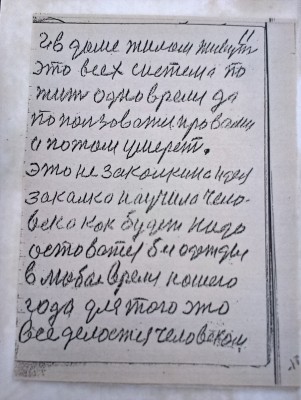 и в доме жилом живут
это всех система по
жить одно время да
попользоваться правами
а потом умереть.
это не закалкина идея
закалка научила чело-
века как будет надо
остоватся без одежды
в любое время нашего
года для того это
все делоется человеком